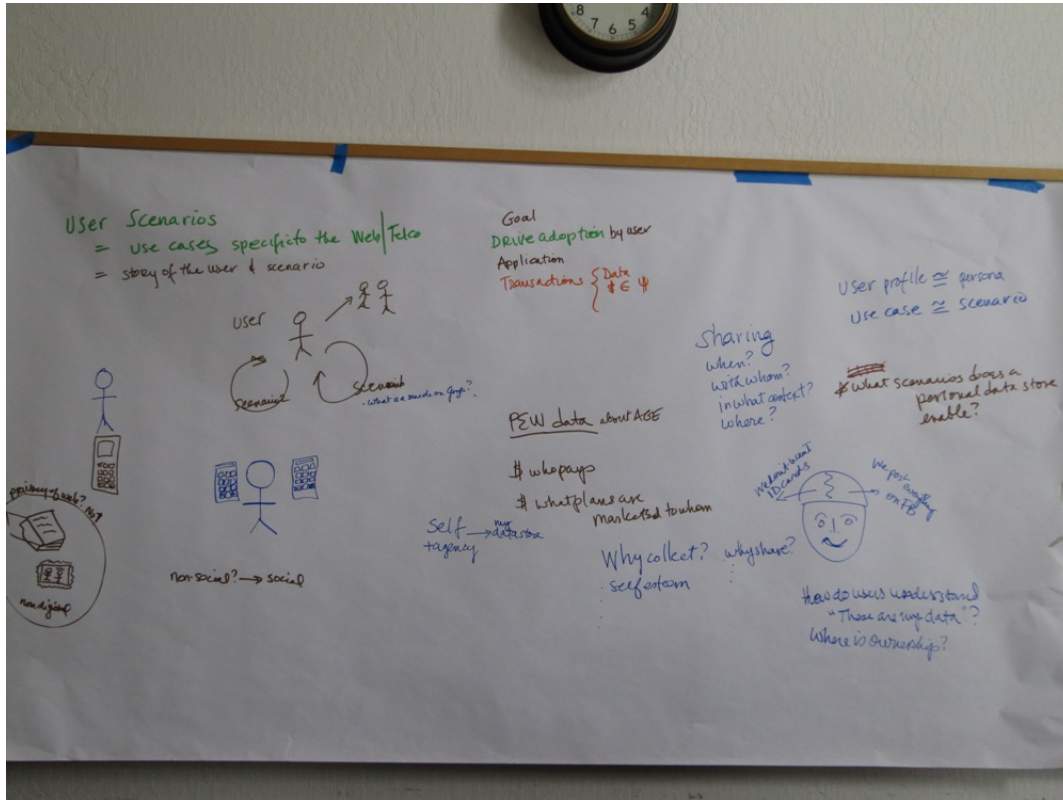 8 7 6 5 4
User Scenarios
= use cases specific to the Web/Telco
= story of the user & scenario
USER
scenario
scenario
- what are search on Google?
privacy of web?
non digital
non-social? → social
Goal
DRIVE adoption by user
Application
Transactions { Data
$ €
PEW data about AGE
$ who pays
$ what plans are
marketed to whom
Self → my
+agency datastore
Why collect?
self esteem
why share?
Sharing
when?
with whom?
in what context?
where?
User profile ≅ persona
Use case ≅ scenario
$ what scenarios does a
personal data store
enable?
We don't want
ID cards
We post everything
on FB
How do users understand
"These are my data"?
Where is ownership?